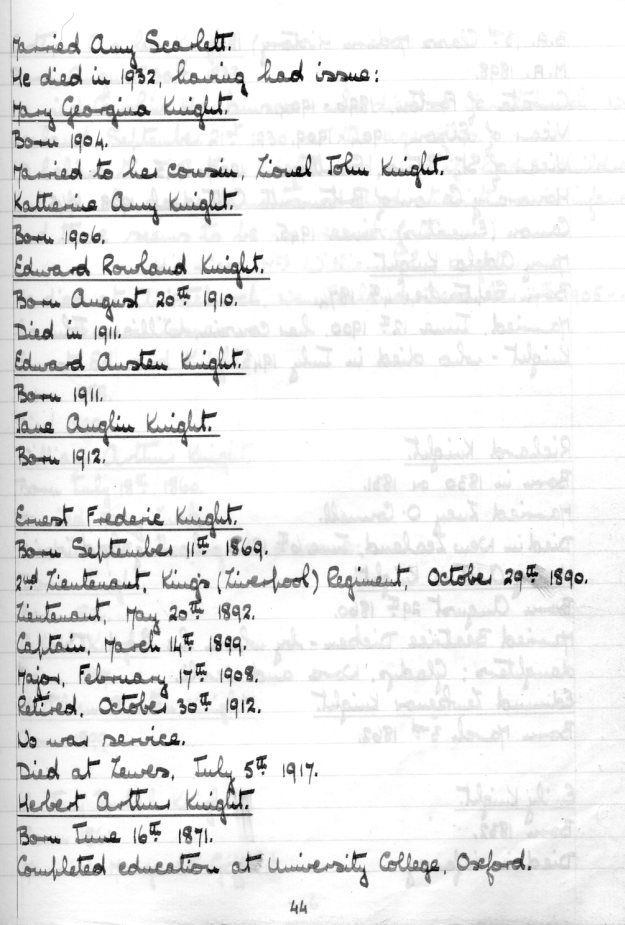 Married Amy Scarlett.
He died in 1932, having had issue:
Mary Georgina Knight.
Born 1904.
Married to her cousin, Lionel John Knight.
Katherine Amy Knight.
Born 1906.
Edward Rowland Knight.
Born August 20th 1910.
Died in 1911.
Edward Austen Knight.
Born 1911.
Jane Anglin Knight.
Born 1912.
Ernest Frederic Knight.
Born September 11th 1869.
2nd Lieutenant, King's (Liverpool) Regiment, October 29th 1890.
Lieutenant, May 20th 1892.
Captain, March 14th 1899.
Major, February 17th 1908.
Retired, October 30th 1912.
No war service.
Died at Lewes, July 5th 1917.
Herbert Arthur Knight.
Born June 16th 1871.
Completed education at University College, Oxford.
44